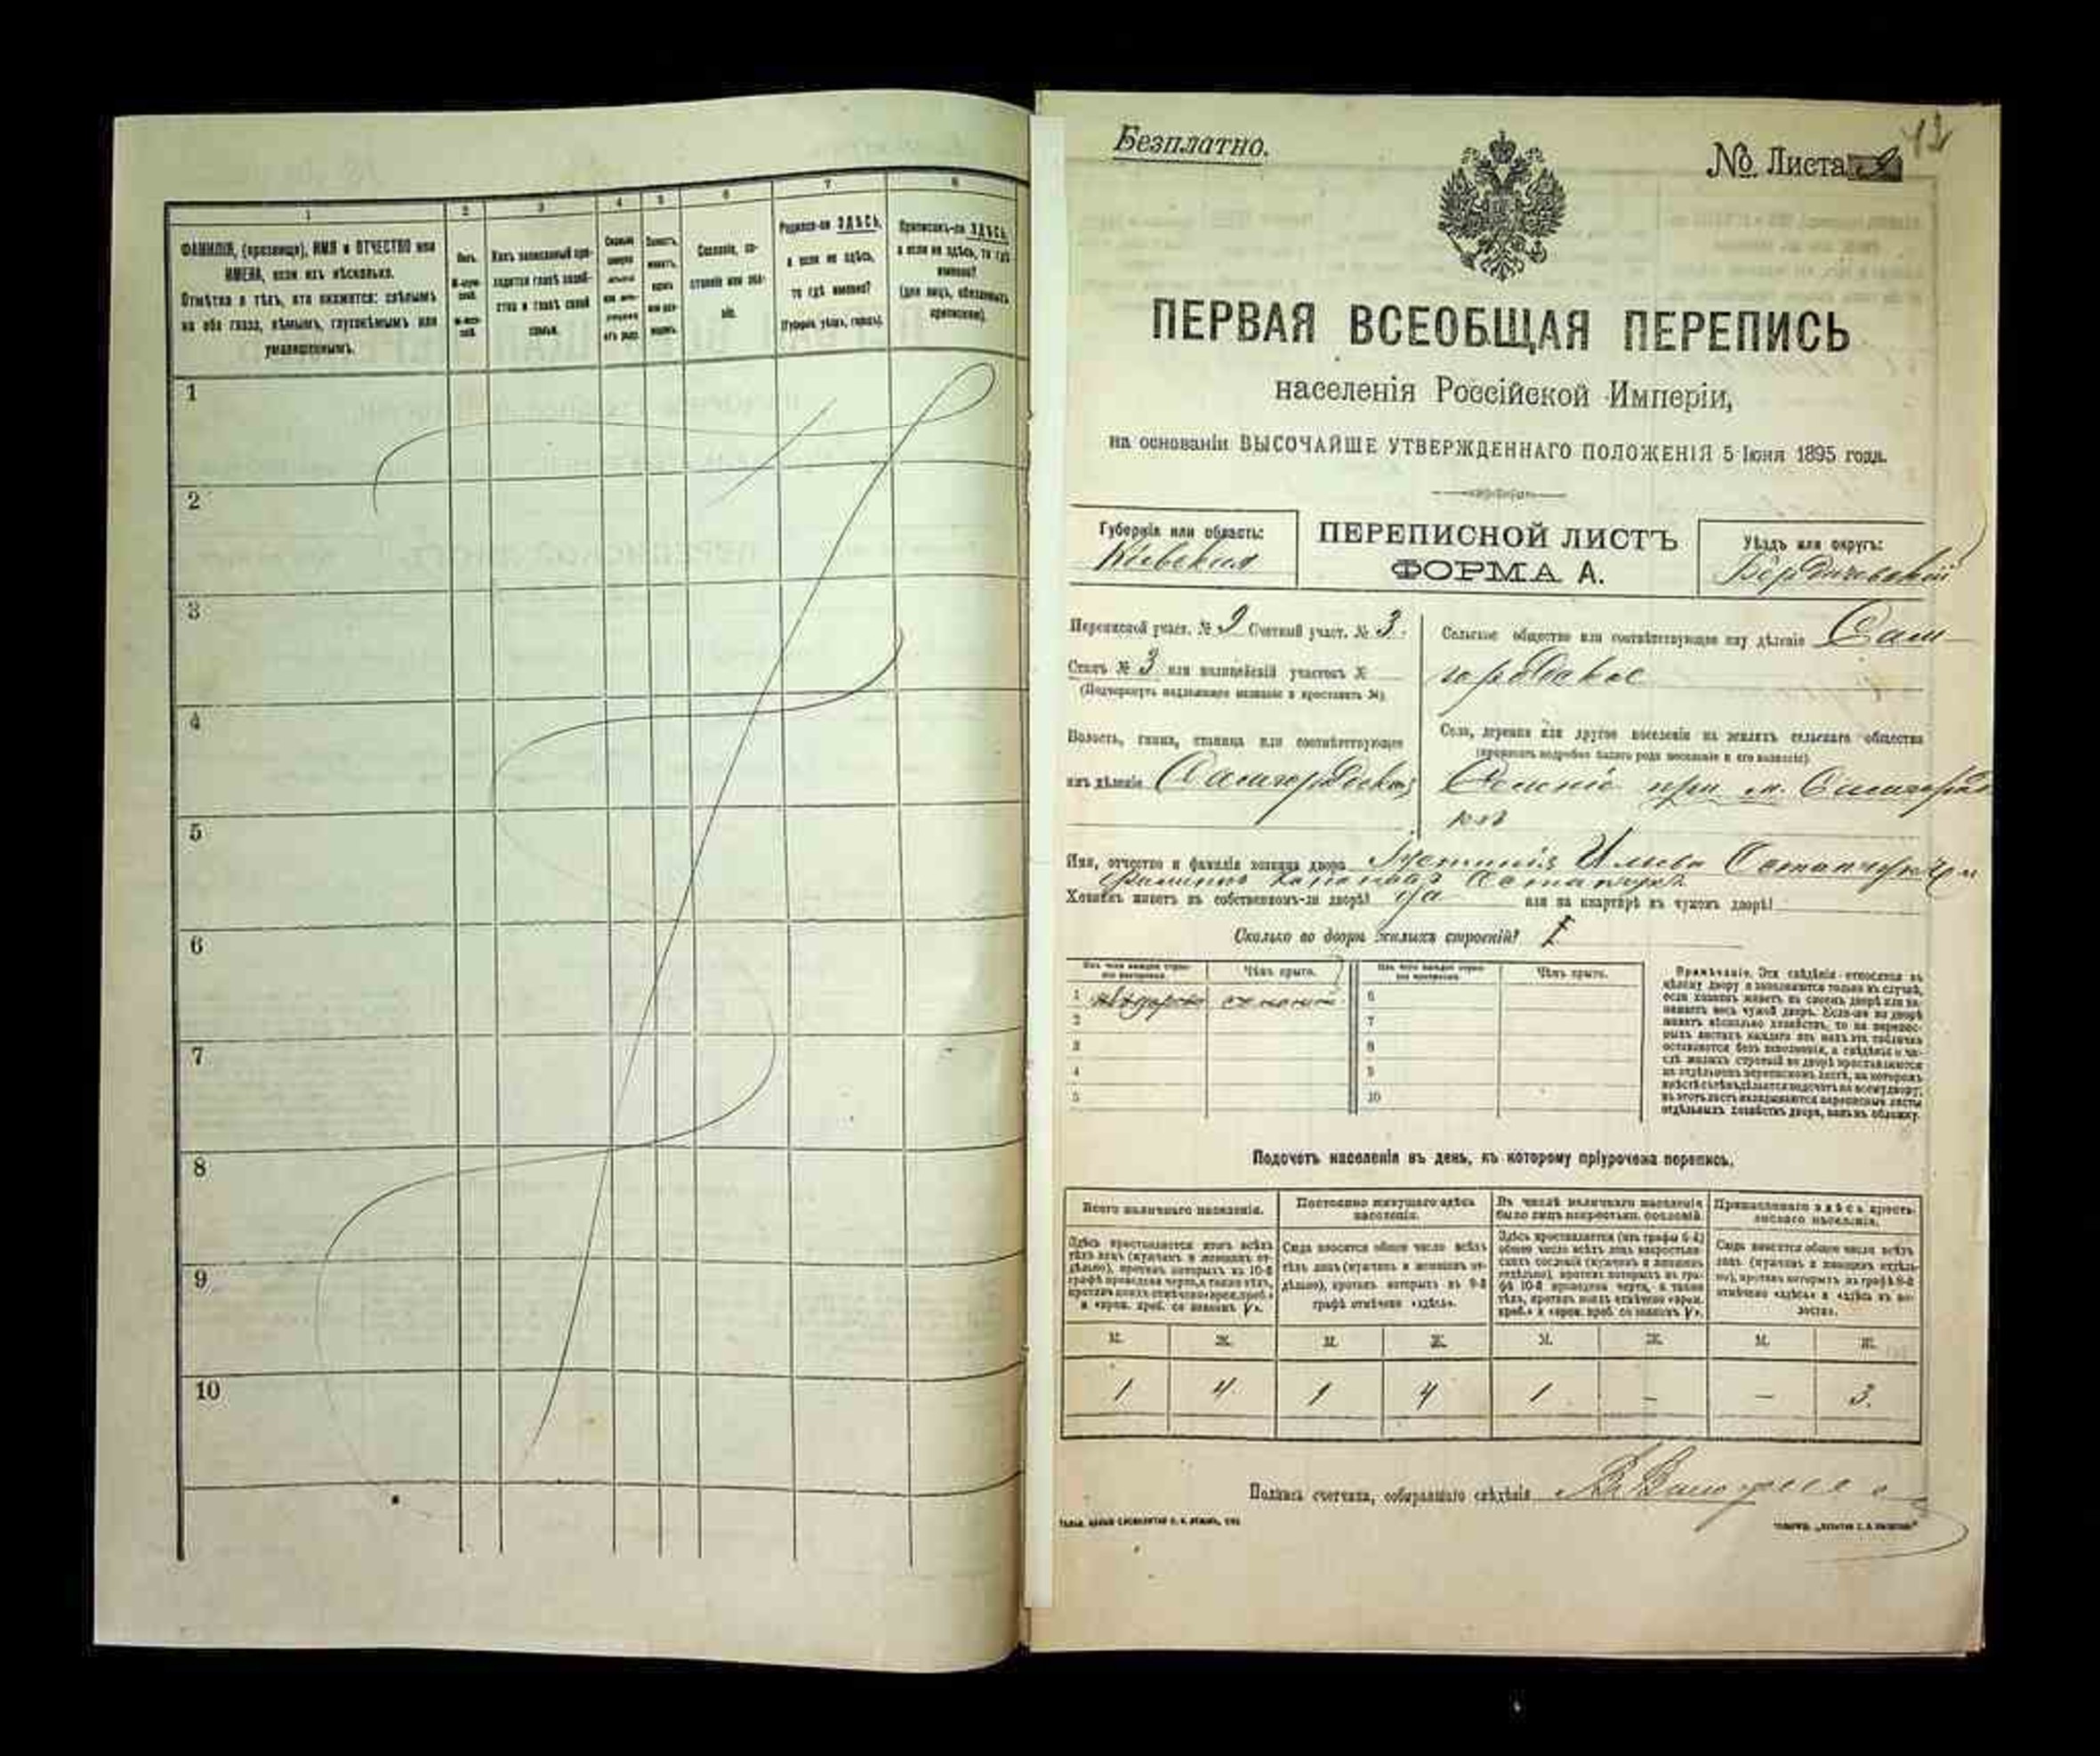 1 2 3 4 5 6 7 8
ФАМИЛІЯ, (прозвище), ИМЯ и ОТЧЕСТВО или
ИМЕНА, если ихъ нѣсколько.
Отмѣтка о тѣхъ, кто окажется: слѣпымъ
на оба глаза, нѣмымъ, глухонѣмымъ или
умалишеннымъ.
Полъ.
Какъ записанный при-
ходится главѣ хозяй-
ства и главѣ своей
семьи.
Сословіе, со-
стояніе или зва-
ніе.
Родился-ли ЗДѢСЬ,
а если не здѣсь,
то гдѣ именно?
(Губернія, уѣздъ, городъ).
Приписанъ-ли ЗДѢСЬ,
а если не здѣсь, то гдѣ
именно?
(для лицъ, обязанныхъ
припискою).
1
2
3
4
5
6
7
8
9
10
Безплатно.
№ Листа
42
ПЕРВАЯ ВСЕОБЩАЯ ПЕРЕПИСЬ
населенія Россійской Имперіи,
на основаніи ВЫСОЧАЙШЕ УТВЕРЖДЕННАГО ПОЛОЖЕНІЯ 5 Іюня 1895 года.
Губернія или область:
Кіевская
ПЕРЕПИСНОЙ ЛИСТЪ
ФОРМА А.
Уѣздъ или округъ:
Бердичевскій
Переписной участ. № 9 Счетный участ. № 3.
Станъ № 3 или полицейскій участокъ №
(Подчеркнуть надлежащее названіе и проставить №).
Волость, гмина, станица или соотвѣтствующее
имъ дѣленіе Самгородская
Сельское общество или соотвѣтствующее ему дѣленіе Сам-
городское
Село, деревня или другое поселеніе на земляхъ сельскаго общества
(прописать подробно какого рода поселеніе и его названіе).
при м. Самгород
кѣ
Имя, отчество и фамилія хозяина двора
Хозяинъ живетъ въ собственномъ-ли дворѣ? да или на квартирѣ въ чужомъ дворѣ?
Сколько во дворѣ жилыхъ строеній? 1
Изъ чего каждое строе-
ніе построено.
Чѣмъ крыто.
Изъ чего каждое строе-
ніе построено.
Чѣмъ крыто.
1 6
2 7
3 8
4 9
5 10
Примѣчаніе. Эти свѣдѣнія относятся къ
цѣлому двору и заполняются только въ случаѣ,
если хозяинъ живетъ въ своемъ дворѣ или за-
нимаетъ весь чужой дворъ. Если-же во дворѣ
живетъ нѣсколько хозяйствъ, то на перепис-
ныхъ листахъ каждаго изъ нихъ эта табличка
остается безъ заполненія, а свѣдѣнія о чи-
слѣ жилыхъ строеній во дворѣ проставляются
на отдѣльномъ переписномъ листѣ, на которомъ
въ этотъ листъ вкладываются переписные листы
отдѣльныхъ хозяйствъ двора, какъ въ обложку.
Подсчетъ населенія въ день, къ которому пріурочена перепись.
Всего наличнаго населенія.
Постоянно живущаго здѣсь
населенія.
Въ числѣ наличнаго населенія
было лицъ некрестьян. сословій.
Приписаннаго здѣсь кресть-
янскаго населенія.
Здѣсь проставляется итогъ всѣхъ
тѣхъ лицъ (мужчинъ и женщинъ от-
дѣльно), противъ которыхъ въ 10-й
графѣ проведена черта, а также тѣхъ,
противъ коихъ отмѣчено «врем. преб.»
и «врем. преб. со знакомъ V».
Сюда вносится общее число всѣхъ
тѣхъ лицъ (мужчинъ и женщинъ от-
дѣльно), противъ которыхъ въ 9-й
графѣ отмѣчено «здѣсь».
Здѣсь проставляется (изъ графы 6-й)
общее число всѣхъ лицъ некрестьян-
скихъ сословій (мужчинъ и женщинъ
отдѣльно), противъ которыхъ въ гра-
фѣ 10-й проведена черта, а также
тѣхъ, противъ коихъ отмѣчено «врем.
преб.» и «врем. преб. со знакомъ V».
Сюда вносится общее число всѣхъ
лицъ (мужчинъ и женщинъ отдѣль-
но), противъ которыхъ въ графѣ 8-й
отмѣчено «здѣсь» и «здѣсь въ во-
лости».
М. Ж. М. Ж. М. Ж. М. Ж.
1 4 1 4 1 – – 3.
Подпись счетчика, собиравшаго свѣдѣнія